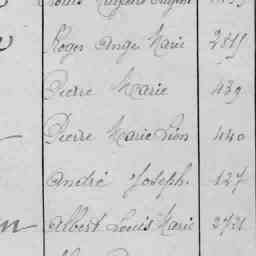 Roger Ange Marie 2815
Pierre Marie 439
Pierre Marie Léon 440
André Joseph. 127
Albert Louis Marie 2721